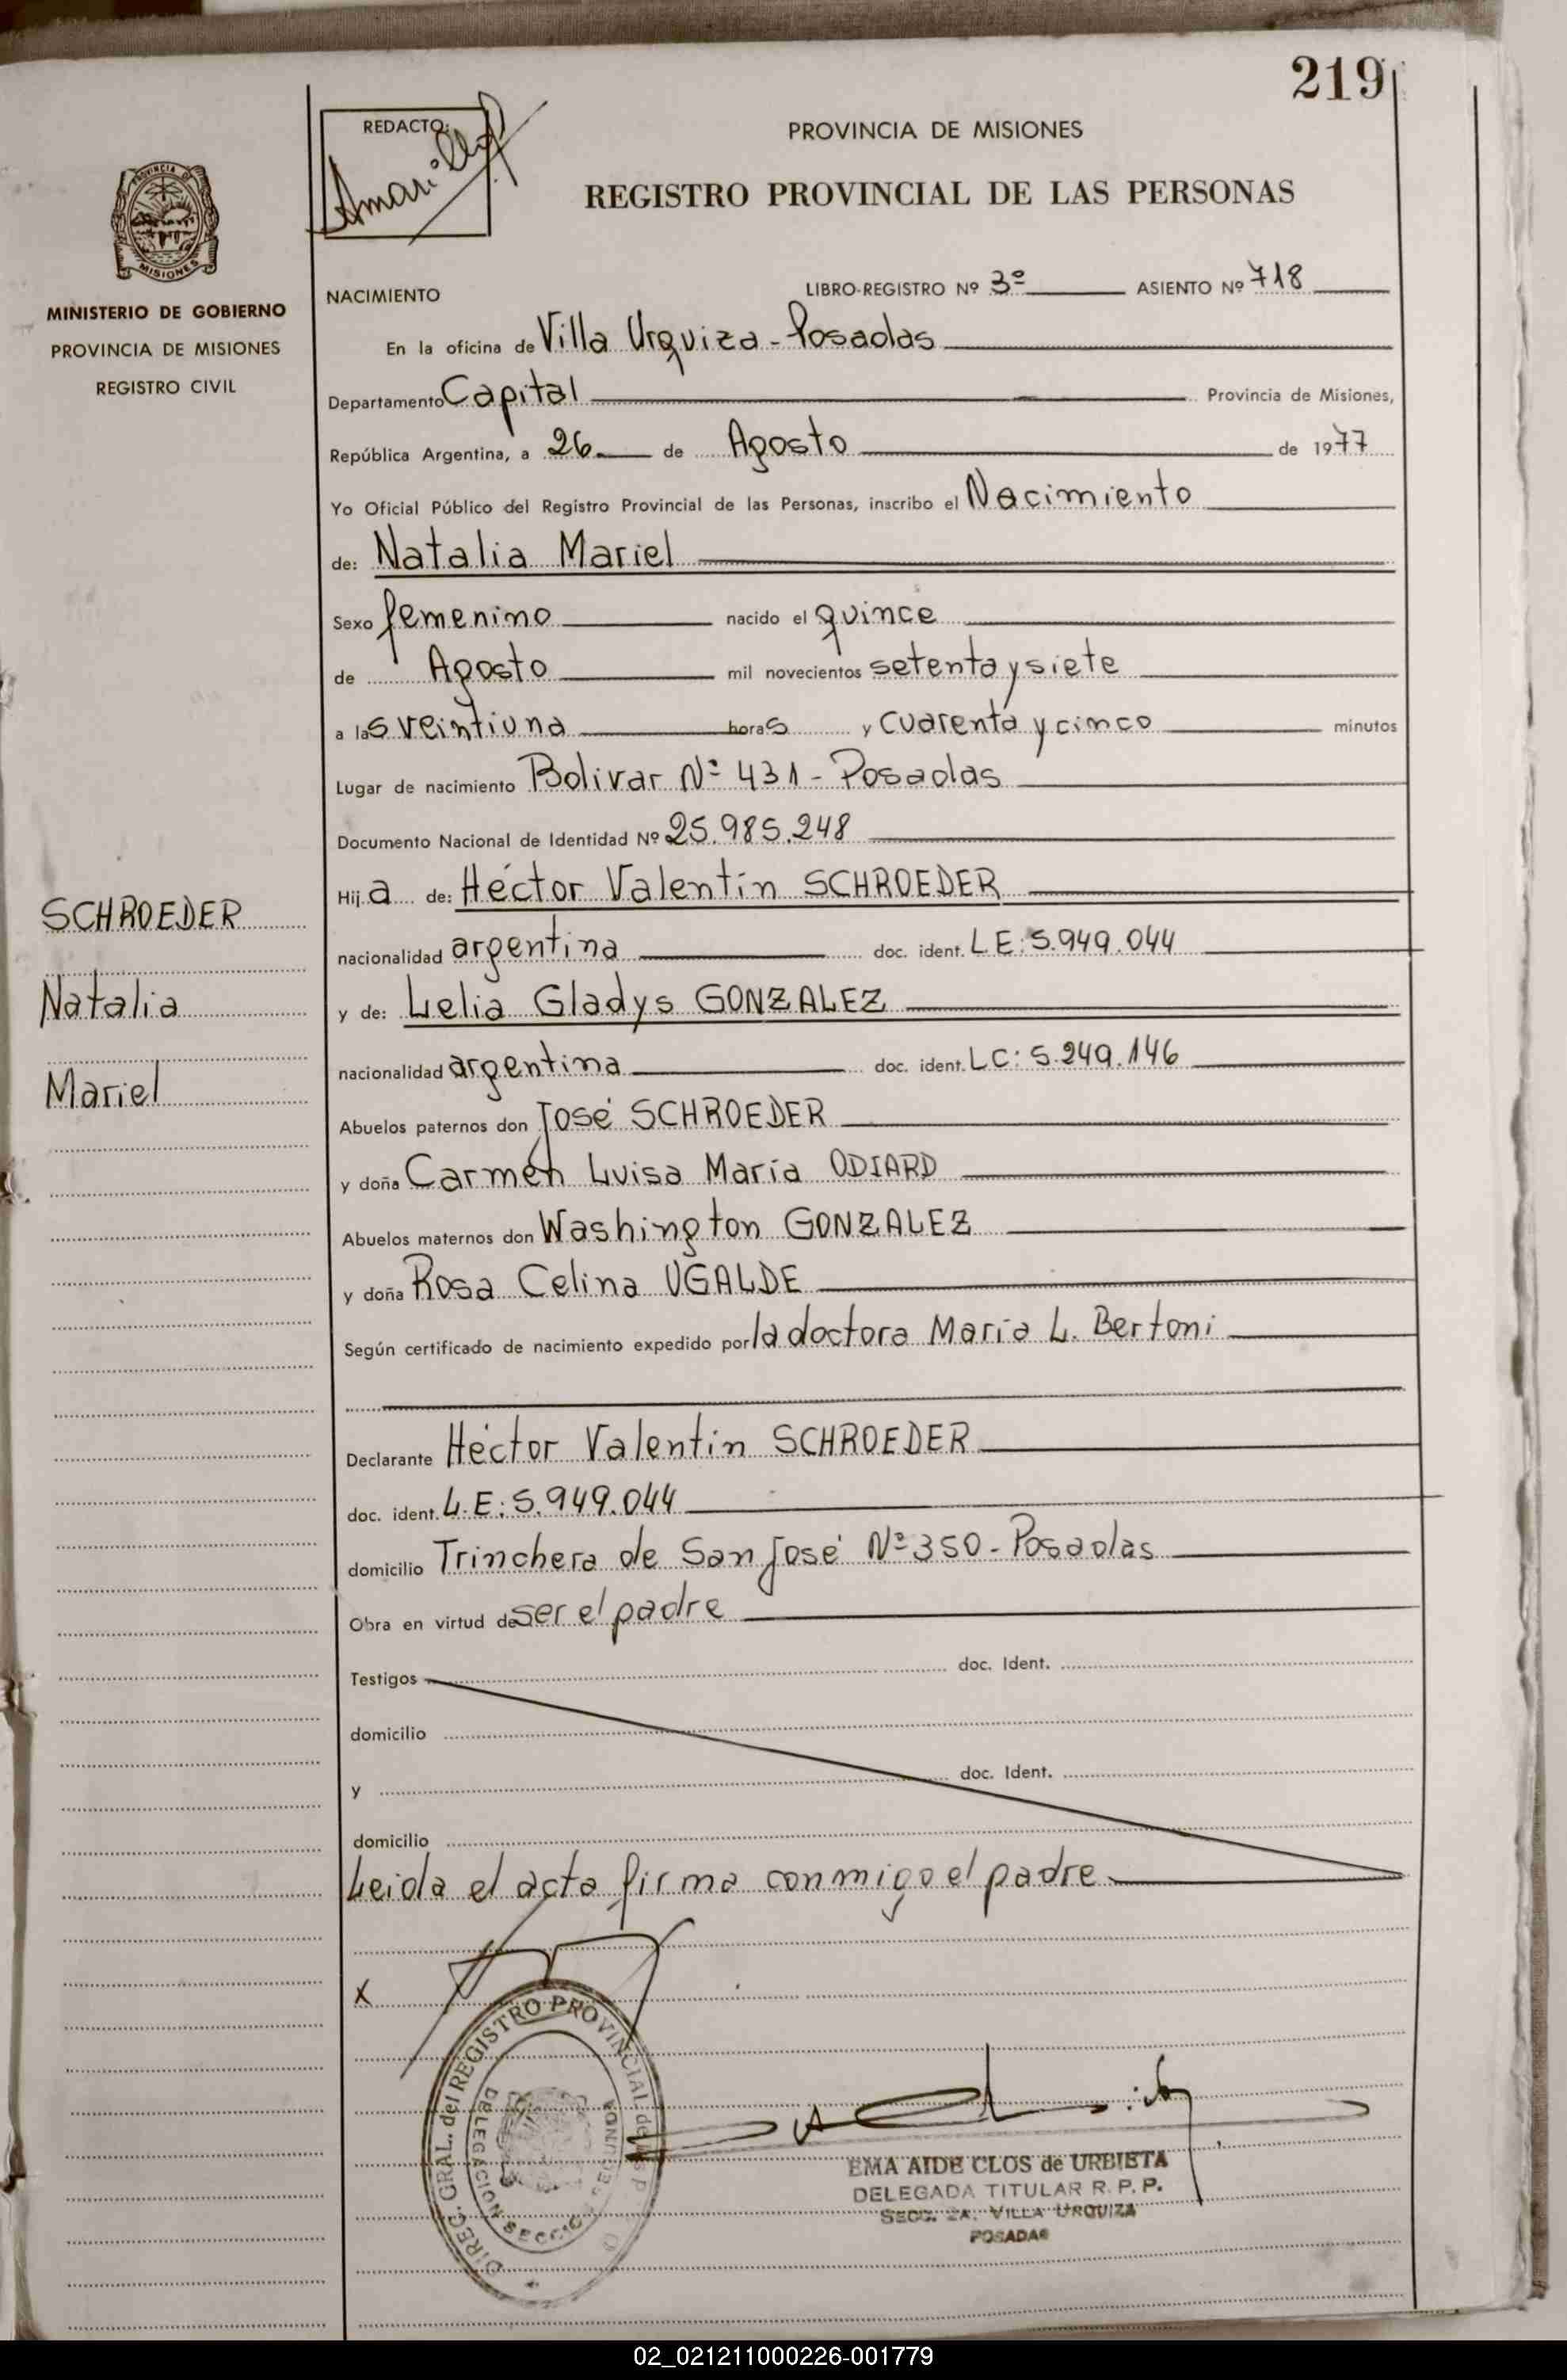 219
REDACTO:
Amarilla
PROVINCIA DE MISIONES
REGISTRO PROVINCIAL DE LAS PERSONAS
PROVINCIA DE
MISIONES
MINISTERIO DE GOBIERNO
PROVINCIA DE MISIONES
REGISTRO CIVIL
NACIMIENTO
LIBRO-REGISTRO Nº 3º ASIENTO Nº 718
En la oficina de Villa Urquiza - Posadas
Departamento Capital Provincia de Misiones,
República Argentina, a 26 de Agosto de 1977
Yo Oficial Público del Registro Provincial de las Personas, inscribo el Nacimiento
de: Natalia Mariel
Sexo femenino nacido el quince
de Agosto mil novecientos setenta y siete
a las veintiuna horas y cuarenta y cinco minutos
Lugar de nacimiento Bolivar Nº 431 - Posadas
Documento Nacional de Identidad Nº 25.985.248
Hija de: Héctor Valentín SCHROEDER
nacionalidad argentina doc. ident. L E: 5.949.044
y de: Lelia Gladys GONZALEZ
nacionalidad argentina doc. ident. LC: 5.249.146
Abuelos paternos don José SCHROEDER
y doña Carmen Luisa María ODIARD
Abuelos maternos don Washington GONZALEZ
y doña Rosa Celina UGALDE
Según certificado de nacimiento expedido por la doctora María L. Bertoni
Declarante Héctor Valentín SCHROEDER
doc. ident. L.E: 5.949.044
domicilio Trinchera de San José Nº 350 - Posadas
Obra en virtud de ser el padre
Testigos doc. Ident.
domicilio
y doc. Ident.
domicilio
Leida el acta firma conmigo el padre
SCHROEDER
Natalia
Mariel
X
DIREC. GRAL. del REGISTRO PROVINCIAL de las P.
DELEGACION SECCION SEGUNDA
EMA AIDE CLOS de URBIETA
DELEGADA TITULAR R. P. P.
SECC. 2A. VILLA URQUIZA
POSADAS
02_021211000226-001779